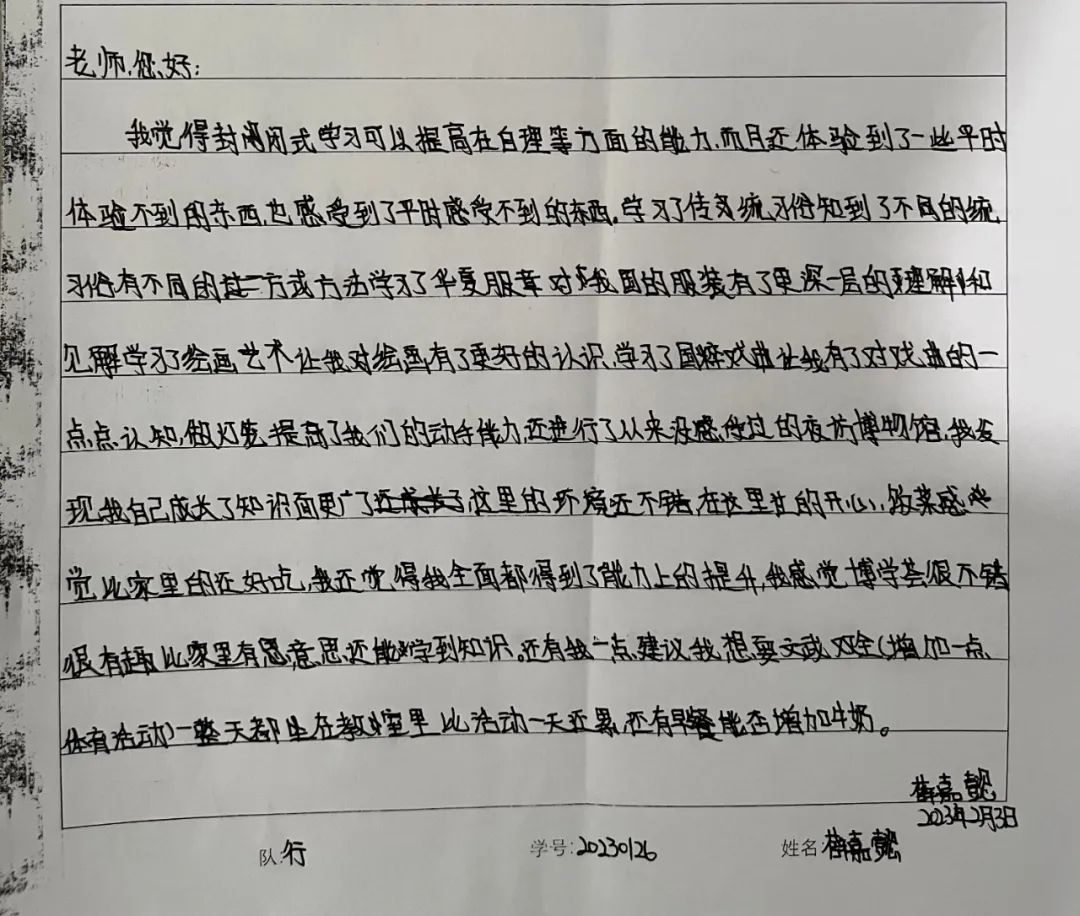 老师,您好:
我觉得封闭式学习可以提高在自理等方面的能力,而且还体验到了一些平时
体验不到的东西,也感受到了平时感受不到的东西。学习了传统习俗知到了不同的统
习俗有不同的方式方法学习了华夏服章对我国的服装有了更深一层的理解和
见解学习了绘画艺术让我对绘画有了更好的认识,学习了国粹戏曲让我有了对戏曲的一
点点认知,做灯笼提高了我们的动手能力,还进行了以来没感受过的夜访博物馆,我发
现我自己成长了知识面更广了这里的环境还不错,在这里住的开心,饭菜感
觉比家里的还好吃,我还觉得我全面都得到了能力上的提升,我感觉博学荟很不错
很有趣比家里有意思还能学到知识。还有我一点建议我想要文或双全(增加一点
体育活动)一整天都坐在教室里比活动一天还累,还有早餐能否增加牛奶。
嘉懿
2023年2月3日
队:行 学号:20230126 姓名:嘉懿